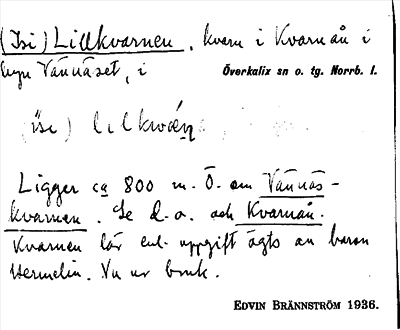 (Isi) Lillkvarnen, kvarn i Kvarnån i
byn Vännäset, i Överkalix sn o. tg. Norrb. l.
(isi)
Ligger ca 800 m. Ö. om Vännäs-
kvarnen. Se d. o. och Kvarnån.
Kvarnen lär enl. uppgift ägts av baron
Hermelin. Nu ur bruk.
EDVIN BRÄNNSTRÖM 1936.